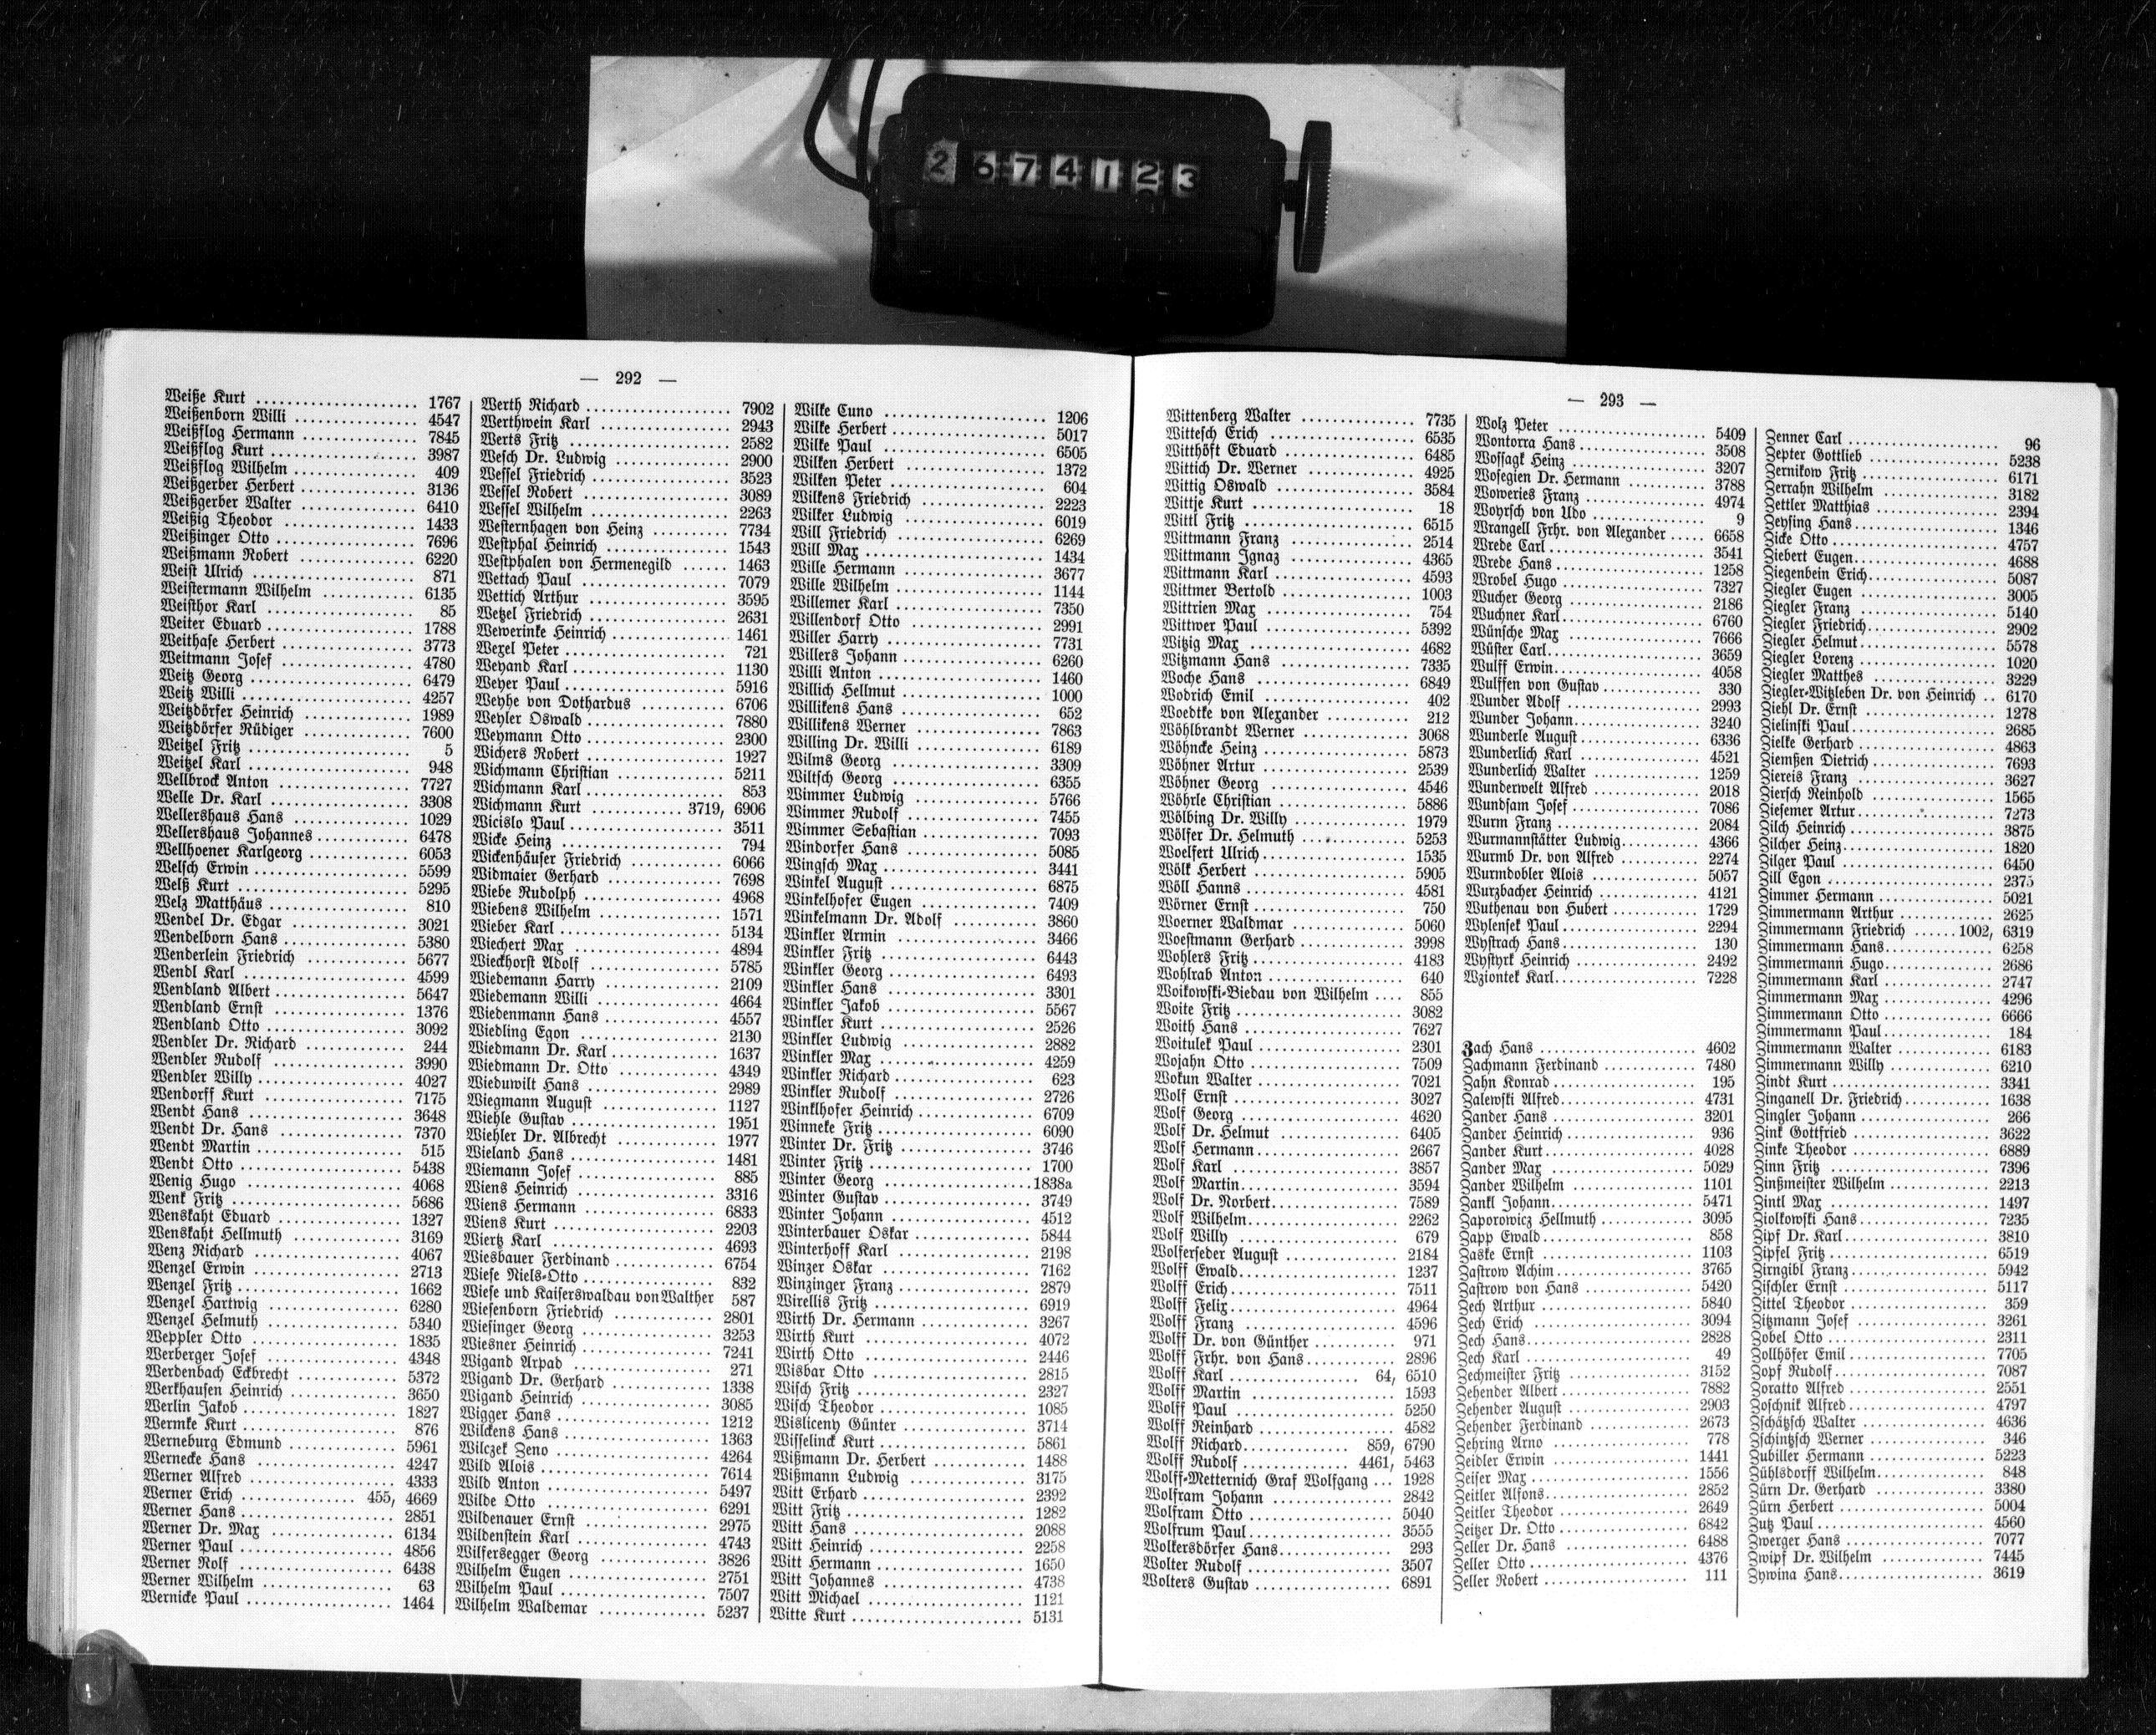 2674123
— 292 —
Weiße Kurt 1767
Weißenborn Willi 4547
Weißflog Hermann 7845
Weißflog Kurt 3987
Weißflog Wilhelm 409
Weißgerber Herbert 3136
Weißgerber Walter 6410
Weißig Theodor 1433
Weißinger Otto 7696
Weißmann Robert 6220
Weist Ulrich 871
Weistermann Wilhelm 6135
Weisthor Karl 85
Weiter Eduard 1788
Weithase Herbert 3773
Weitmann Josef 4780
Weitz Georg 6479
Weitz Willi 4257
Weitzdörfer Heinrich 1989
Weitzdörfer Rüdiger 7600
Weitzel Fritz 5
Weitzel Karl 948
Wellbrock Anton 7727
Welle Dr. Karl 3308
Wellershaus Hans 1029
Wellershaus Johannes 6478
Wellhoener Karlgeorg 6053
Welsch Erwin 5599
Welß Kurt 5295
Welz Matthäus 810
Wendel Dr. Edgar 3021
Wendelborn Hans 5380
Wenderlein Friedrich 5677
Wendl Karl 4599
Wendland Albert 5647
Wendland Ernst 1376
Wendland Otto 3092
Wendler Dr. Richard 244
Wendler Rudolf 3990
Wendler Willy 4027
Wendorff Kurt 7175
Wendt Hans 3648
Wendt Dr. Hans 7370
Wendt Martin 515
Wendt Otto 5438
Wenig Hugo 4068
Wenk Fritz 5686
Wenskaht Eduard 1327
Wenskaht Hellmuth 3169
Wenz Richard 4067
Wenzel Erwin 2713
Wenzel Fritz 1662
Wenzel Hartwig 6280
Wenzel Helmuth 5340
Weppler Otto 1835
Werberger Josef 4348
Werdenbach Eckbrecht 5372
Werkhausen Heinrich 3650
Werlin Jakob 1827
Wermke Kurt 876
Werneburg Edmund 5961
Wernecke Hans 4247
Werner Alfred 4333
Werner Erich 455, 4669
Werner Hans 2851
Werner Dr. Max 6134
Werner Paul 4856
Werner Rolf 6438
Werner Wilhelm 63
Wernicke Paul 1464
Werth Richard 7902
Werthwein Karl 2943
Werts Fritz 2582
Wesch Dr. Ludwig 2900
Wessel Friedrich 3523
Wessel Robert 3089
Wessel Wilhelm 2263
Westernhagen von Heinz 7734
Westphal Heinrich 1543
Westphalen von Hermenegild 1463
Wettach Paul 7079
Wettich Arthur 3595
Wetzel Friedrich 2631
Wewerinke Heinrich 1461
Wexel Peter 721
Weyand Karl 1130
Weyer Paul 5916
Weyhe von Dothardus 6706
Weyler Oswald 7880
Weymann Otto 2300
Wichers Robert 1927
Wichmann Christian 5211
Wichmann Karl 853
Wichmann Kurt 3719, 6906
Wicislo Paul 3511
Wicke Heinz 794
Wickenhäuser Friedrich 6066
Widmaier Gerhard 7698
Wiebe Rudolph 4968
Wiebens Wilhelm 1571
Wieber Karl 5134
Wiechert Max 4894
Wieckhorst Adolf 5785
Wiedemann Harry 2109
Wiedemann Willi 4664
Wiedenmann Hans 4557
Wiedling Egon 2130
Wiedmann Dr. Karl 1637
Wiedmann Dr. Otto 4349
Wieduwilt Hans 2989
Wiegmann August 1127
Wiehle Gustav 1951
Wiehler Dr. Albrecht 1977
Wieland Hans 1481
Wiemann Josef 885
Wiens Heinrich 3316
Wiens Hermann 6833
Wiens Kurt 2203
Wiertz Karl 4693
Wiesbauer Ferdinand 6754
Wiese Niels-Otto 832
Wiese und Kaiserswaldau von Walther 587
Wiesenborn Friedrich 2801
Wiesinger Georg 3253
Wiesner Heinrich 7241
Wigand Arpad 271
Wigand Dr. Gerhard 1338
Wigand Heinrich 3085
Wigger Hans 1212
Wilckens Hans 1363
Wilczek Zeno 4264
Wild Alois 7614
Wild Anton 5497
Wilde Otto 6291
Wildenauer Ernst 2975
Wildenstein Karl 4743
Wilfersegger Georg 3826
Wilhelm Eugen 2751
Wilhelm Paul 7507
Wilhelm Waldemar 5237
Wilke Cuno 1206
Wilke Herbert 5017
Wilke Paul 6505
Wilken Herbert 1372
Wilken Peter 604
Wilkens Friedrich 2223
Wilker Ludwig 6019
Will Friedrich 6269
Will Max 1434
Wille Hermann 3677
Wille Wilhelm 1144
Willemer Karl 7350
Willendorf Otto 2991
Willer Harry 7731
Willers Johann 6260
Willi Anton 1460
Willich Hellmut 1000
Willikens Hans 652
Willikens Werner 7863
Willing Dr. Willi 6189
Wilms Georg 3309
Wiltsch Georg 6355
Wimmer Ludwig 5766
Wimmer Rudolf 7455
Wimmer Sebastian 7093
Windorfer Hans 5085
Wingsch Max 3441
Winkel August 6875
Winkelhofer Eugen 7409
Winkelmann Dr. Adolf 3860
Winkler Armin 3466
Winkler Fritz 6443
Winkler Georg 6493
Winkler Hans 3301
Winkler Jakob 5567
Winkler Kurt 2526
Winkler Ludwig 2882
Winkler Max 4259
Winkler Richard 623
Winkler Rudolf 2726
Winklhofer Heinrich 6709
Winneke Fritz 6090
Winter Dr. Fritz 3746
Winter Fritz 1700
Winter Georg 1838a
Winter Gustav 3749
Winter Johann 4512
Winterbauer Oskar 5844
Winterhoff Karl 2198
Winzer Oskar 7162
Winzinger Franz 2879
Wirellis Fritz 6919
Wirth Dr. Hermann 3267
Wirth Kurt 4072
Wirth Otto 2446
Wisbar Otto 2815
Wisch Fritz 2327
Wisch Theodor 1085
Wisliceny Günter 3714
Wisselinck Kurt 5861
Wißmann Dr. Herbert 1488
Wißmann Ludwig 3175
Witt Erhard 2392
Witt Fritz 1282
Witt Hans 2088
Witt Heinrich 2258
Witt Hermann 1650
Witt Johannes 4738
Witt Michael 1121
Witte Kurt 5131
— 293 —
Wittenberg Walter 7735
Wittesch Erich 6535
Witthöft Eduard 6485
Wittich Dr. Werner 4925
Wittig Oswald 3584
Wittje Kurt 18
Wittl Fritz 6515
Wittmann Franz 2514
Wittmann Ignaz 4365
Wittmann Karl 4593
Wittmer Bertold 1003
Wittrien Max 754
Wittwer Paul 5392
Witzig Max 4682
Witzmann Hans 7335
Woche Hans 6849
Wodrich Emil 402
Woedtke von Alexander 212
Wöhlbrandt Werner 3068
Wöhncke Heinz 5873
Wöhner Artur 2539
Wöhner Georg 4546
Wöhrle Christian 5886
Wölbing Dr. Willy 1979
Wölfer Dr. Helmuth 5253
Woelfert Ulrich 1535
Wölk Herbert 5905
Wöll Hanns 4581
Wörner Ernst 750
Woerner Waldmar 5060
Woestmann Gerhard 3998
Wohlers Fritz 4183
Wohlrab Anton 640
Woikowski-Biedau von Wilhelm 855
Woite Fritz 3082
Woith Hans 7627
Woitulek Paul 2301
Wojahn Otto 7509
Wokun Walter 7021
Wolf Ernst 3027
Wolf Georg 4620
Wolf Dr. Helmut 6405
Wolf Hermann 2667
Wolf Karl 3857
Wolf Martin 3594
Wolf Dr. Norbert 7589
Wolf Wilhelm 2262
Wolf Willy 679
Wolferseder August 2184
Wolff Ewald 1237
Wolff Erich 7511
Wolff Felix 4964
Wolff Franz 4596
Wolff Dr. von Günther 971
Wolff Frhr. von Hans 2896
Wolff Karl 64, 6510
Wolff Martin 1593
Wolff Paul 5250
Wolff Reinhard 4582
Wolff Richard 859, 6790
Wolff Rudolf 4461, 5463
Wolff-Metternich Graf Wolfgang 1928
Wolfram Johann 2842
Wolfram Otto 5040
Wolfrum Paul 3555
Wolkersdörfer Hans 293
Wolter Rudolf 3507
Wolters Gustav 6891
Wolz Peter 5409
Wontorra Hans 3508
Wossagk Heinz 3207
Wosegien Dr. Hermann 3788
Woweries Franz 4974
Woyrsch von Udo 9
Wrangell Frhr. von Alexander 6658
Wrede Carl 3541
Wrede Hans 1258
Wrobel Hugo 7327
Wucher Georg 2186
Wuchner Karl 6760
Wünsche Max 7666
Wüster Carl 3659
Wulff Erwin 4058
Wulffen von Gustav 330
Wunder Adolf 2993
Wunder Johann 3240
Wunderle August 6336
Wunderlich Karl 4521
Wunderlich Walter 1259
Wunderwelt Alfred 2018
Wundsam Josef 7086
Wurm Franz 2084
Wurmannstätter Ludwig 4366
Wurmb Dr. von Alfred 2274
Wurmdobler Alois 5057
Wurzbacher Heinrich 4121
Wuthenau von Hubert 1729
Wylensek Paul 2294
Wystrach Hans 130
Wystyrk Heinrich 2492
Wziontek Karl 7228
Zach Hans 4602
Zachmann Ferdinand 7480
Zahn Konrad 195
Zalewski Alfred 4731
Zander Hans 3201
Zander Heinrich 936
Zander Kurt 4028
Zander Max 5029
Zander Wilhelm 1101
Zankl Johann 5471
Zaporowicz Hellmuth 3095
Zapp Ewald 858
Zaske Ernst 1103
Zastrow Achim 3765
Zastrow von Hans 5420
Zech Arthur 5840
Zech Erich 3094
Zech Hans 2828
Zech Karl 49
Zechmeister Fritz 3152
Zehender Albert 7882
Zehender August 2903
Zehender Ferdinand 2673
Zehring Arno 778
Zeidler Erwin 1441
Zeiser Max 1556
Zeitler Alfons 2852
Zeitler Theodor 2649
Zeitzer Dr. Otto 6842
Zeller Dr. Hans 6488
Zeller Otto 4376
Zeller Robert 111
Zenner Carl 96
Zepter Gottlieb 5238
Zernikow Fritz 6171
Zerrahn Wilhelm 3182
Zettler Matthias 2394
Zeysing Hans 1346
Zicke Otto 4757
Ziebert Eugen 4688
Ziegenbein Erich 5087
Ziegler Eugen 3005
Ziegler Franz 5140
Ziegler Friedrich 2902
Ziegler Helmut 5578
Ziegler Lorenz 1020
Ziegler Matthes 3229
Ziegler-Witzleben Dr. von Heinrich 6170
Ziehl Dr. Ernst 1278
Zielinski Paul 2685
Zielke Gerhard 4863
Ziemßen Dietrich 7693
Ziereis Franz 3627
Ziersch Reinhold 1565
Ziesemer Artur 7273
Zilch Heinrich 3875
Zilcher Heinz 1820
Zilger Paul 6450
Zill Egon 2375
Zimmer Hermann 5021
Zimmermann Arthur 2625
Zimmermann Friedrich 1002, 6319
Zimmermann Hans 6258
Zimmermann Hugo 2686
Zimmermann Karl 2747
Zimmermann Max 4296
Zimmermann Otto 6666
Zimmermann Paul 184
Zimmermann Walter 6183
Zimmermann Willy 6210
Zindt Kurt 3341
Zinganell Dr. Friedrich 1638
Zingler Johann 266
Zink Gottfried 3622
Zinke Theodor 6889
Zinn Fritz 7396
Zinßmeister Wilhelm 2213
Zintl Max 1497
Ziolkowski Hans 7235
Zipf Dr. Karl 3810
Zipfel Fritz 6519
Zirngibl Franz 5942
Zischler Ernst 5117
Zittel Theodor 359
Zitzmann Josef 3261
Zobel Otto 2311
Zollhöfer Emil 7705
Zopf Rudolf 7087
Zoratto Alfred 2551
Zoschnik Alfred 4797
Zschätzsch Walter 4636
Zschintzsch Werner 346
Zubiller Hermann 5223
Zühlsdorff Wilhelm 848
Zürn Dr. Gerhard 3380
Zürn Herbert 5004
Zutz Paul 4560
Zwerger Hans 7077
Zwipf Dr. Wilhelm 7445
Zywina Hans 3619